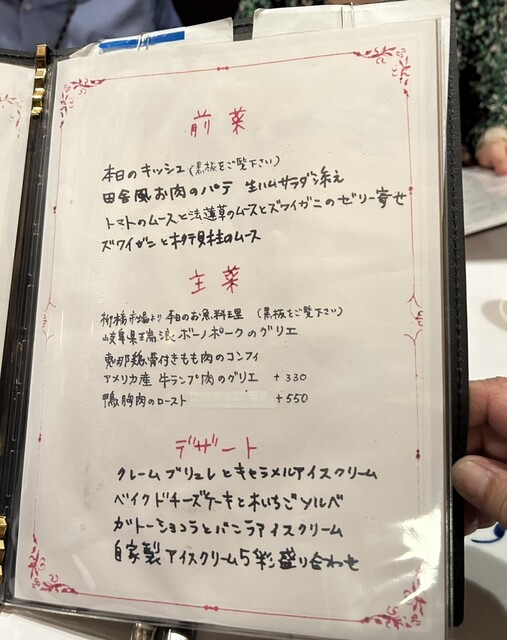 前菜
本日のキッシュ(黒板をご覧下さい)
田舎風お肉のパテ 生ハムサラダ添え
トマトのムースと法蓮草のムースとズワイガニのゼリー寄せ
ズワイガニとホタテ貝柱のムース
主菜
柳橋市場より 本日のお魚料理 (黒板をご覧下さい)
岐阜県瑞浪ボーノポークのグリエ
恵那鶏骨付きもも肉のコンフィ
アメリカ産 牛ランプ肉のグリエ +330
鴨胸肉のロースト +550
デザート
クレームブリュレとキャラメルアイスクリーム
ベイクドチーズケーキと木いちごソルベ
ガトーショコラとバニラアイスクリーム
自家製アイスクリーム5彩盛り合わせ